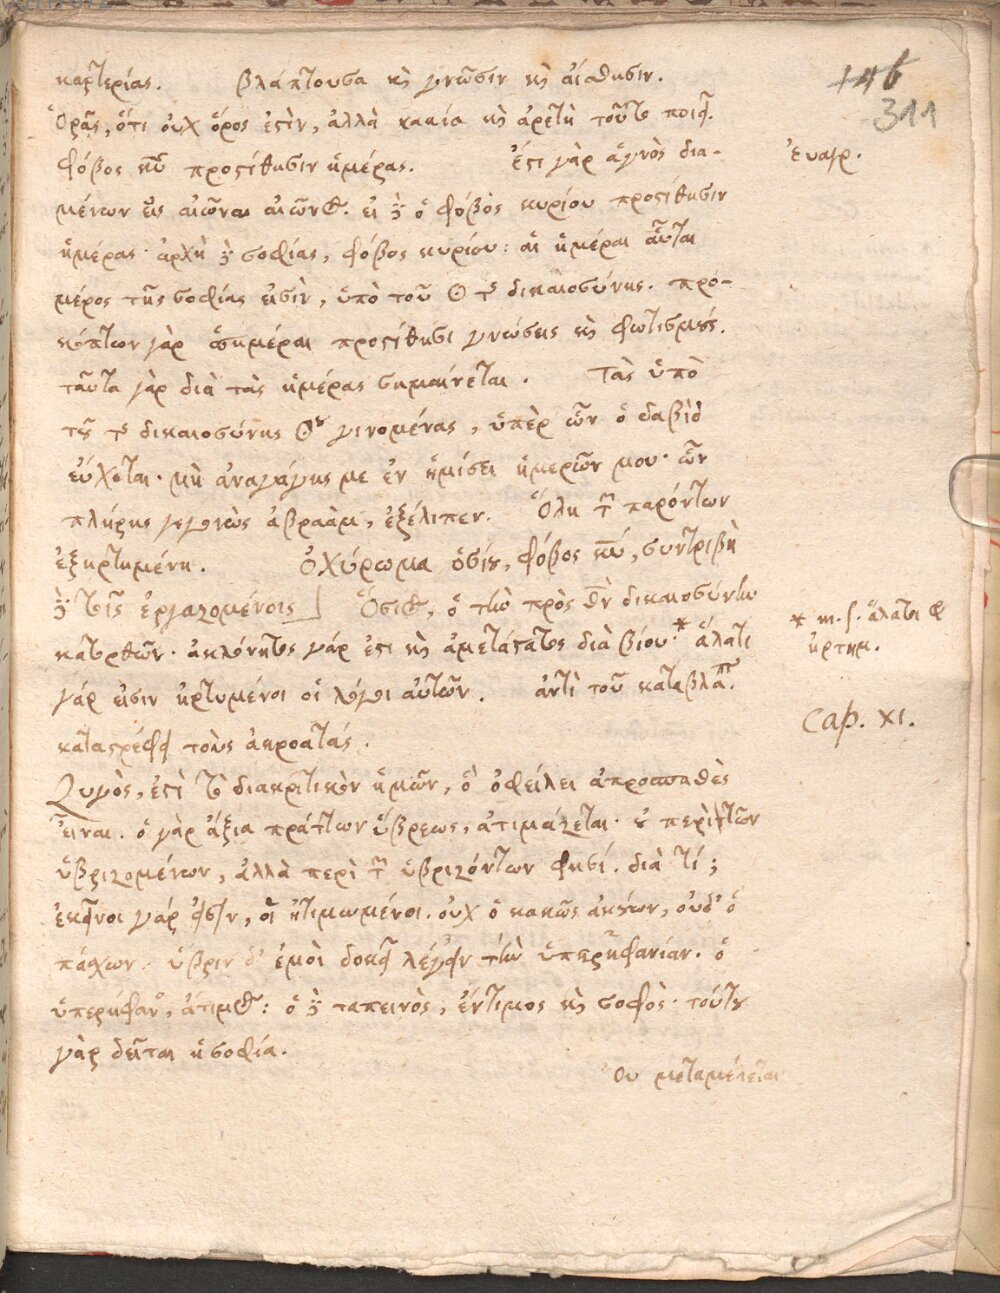 146
311
καρτερίας. βλάπτουσα κὶ γνῶσιν κὶ αἴσθησιν.
Ὁρᾷς, ὅτι οὐχ ὅρος ἐστὶν, ἀλλὰ κακία κὶ ἀρετὴ τοῦτο ποιεῖ.
φόβος κυ προστίθησιν ἡμέρας. ἔστι γὰρ ἁγνὸς δια-
ἐυαγρ.
μένων εἰς αἰῶνα αἰῶνος. εἰ δὲ ὁ φόβος κυρίου προστίθησιν
ἡμέρας· ἀρχὴ δὲ σοφίας, φόβος κυρίου: αἱ ἡμέραι αὗται
μέρος τῆς σοφίας εἰσὶν, ὑπὸ τοῦ τῆς δικαιοσύνης. προ-
κόπτων γὰρ ὁσημέραι προστίθησι γνώσεις κὶ φωτισμούς.
ταῦτα γὰρ διὰ τὰς ἡμέρας σημαίνεται. Τὰς ὑπὸ
τοῦ τῆς δικαιοσύνης γινομένας, ὑπὲρ ὧν ὁ δαβὶδ
εὔχεται· μὴ ἀναγάγῃς με ἐν ἡμίσει ἡμερῶν μου· ὧν
πλήρης γεγονὼς ἀβραὰμ, ἐξέλιπεν. Ὅλη τῶν παρόντων
ἐξηρτημένη. Ὀχύρωμα ὁσίου, φόβος κυ, συντριβὴ
δὲ τοῖς ἐργαζομένοις] Ὅσιος, ὁ τὴν πρὸς θν δικαιοσύνην
κατορθῶν· ἀκλόνητος γάρ ἐστι κὶ ἀμετάστατος διὰ βίου·* ἅλατι
* m. s. ἅλατι
ἠρτημ.
γάρ εἰσιν ἠρτυμένοι οἱ λόγοι αὐτῶν. ἀντὶ τοῦ καταβλάπτ.
καταστρέφει τοὺς ἀκροατάς.
Cap. XI.
Ζυγὸς, ἐστὶ τὸ διακριτικὸν ἡμῶν, ὃ ὀφείλει ἀπροσπαθὲς
εἶναι. ὁ γὰρ ἄξια πράττων ὕβρεως, ἀτιμάζεται· οὐ περὶ τῶν
ὑβριζομένων, ἀλλὰ περὶ τῶν ὑβριζόντων φησί. διὰ τί;
ἐκεῖνοι γάρ εἰσιν, οἱ ἠτιμωμένοι. οὐχ ὁ κακῶς ἀκούων, οὐδ' ὁ
πάσχων. ὕβριν δ' ἐμοὶ δοκεῖ λέγειν τὴν ὑπερηφανίαν. ὁ
ὑπερήφανος, ἄτιμος: ὁ δὲ ταπεινὸς, ἔντιμος κὶ σοφός· τούτου
γὰρ δεῖται ἡ σοφία.
Οὐ μεταμέλεται